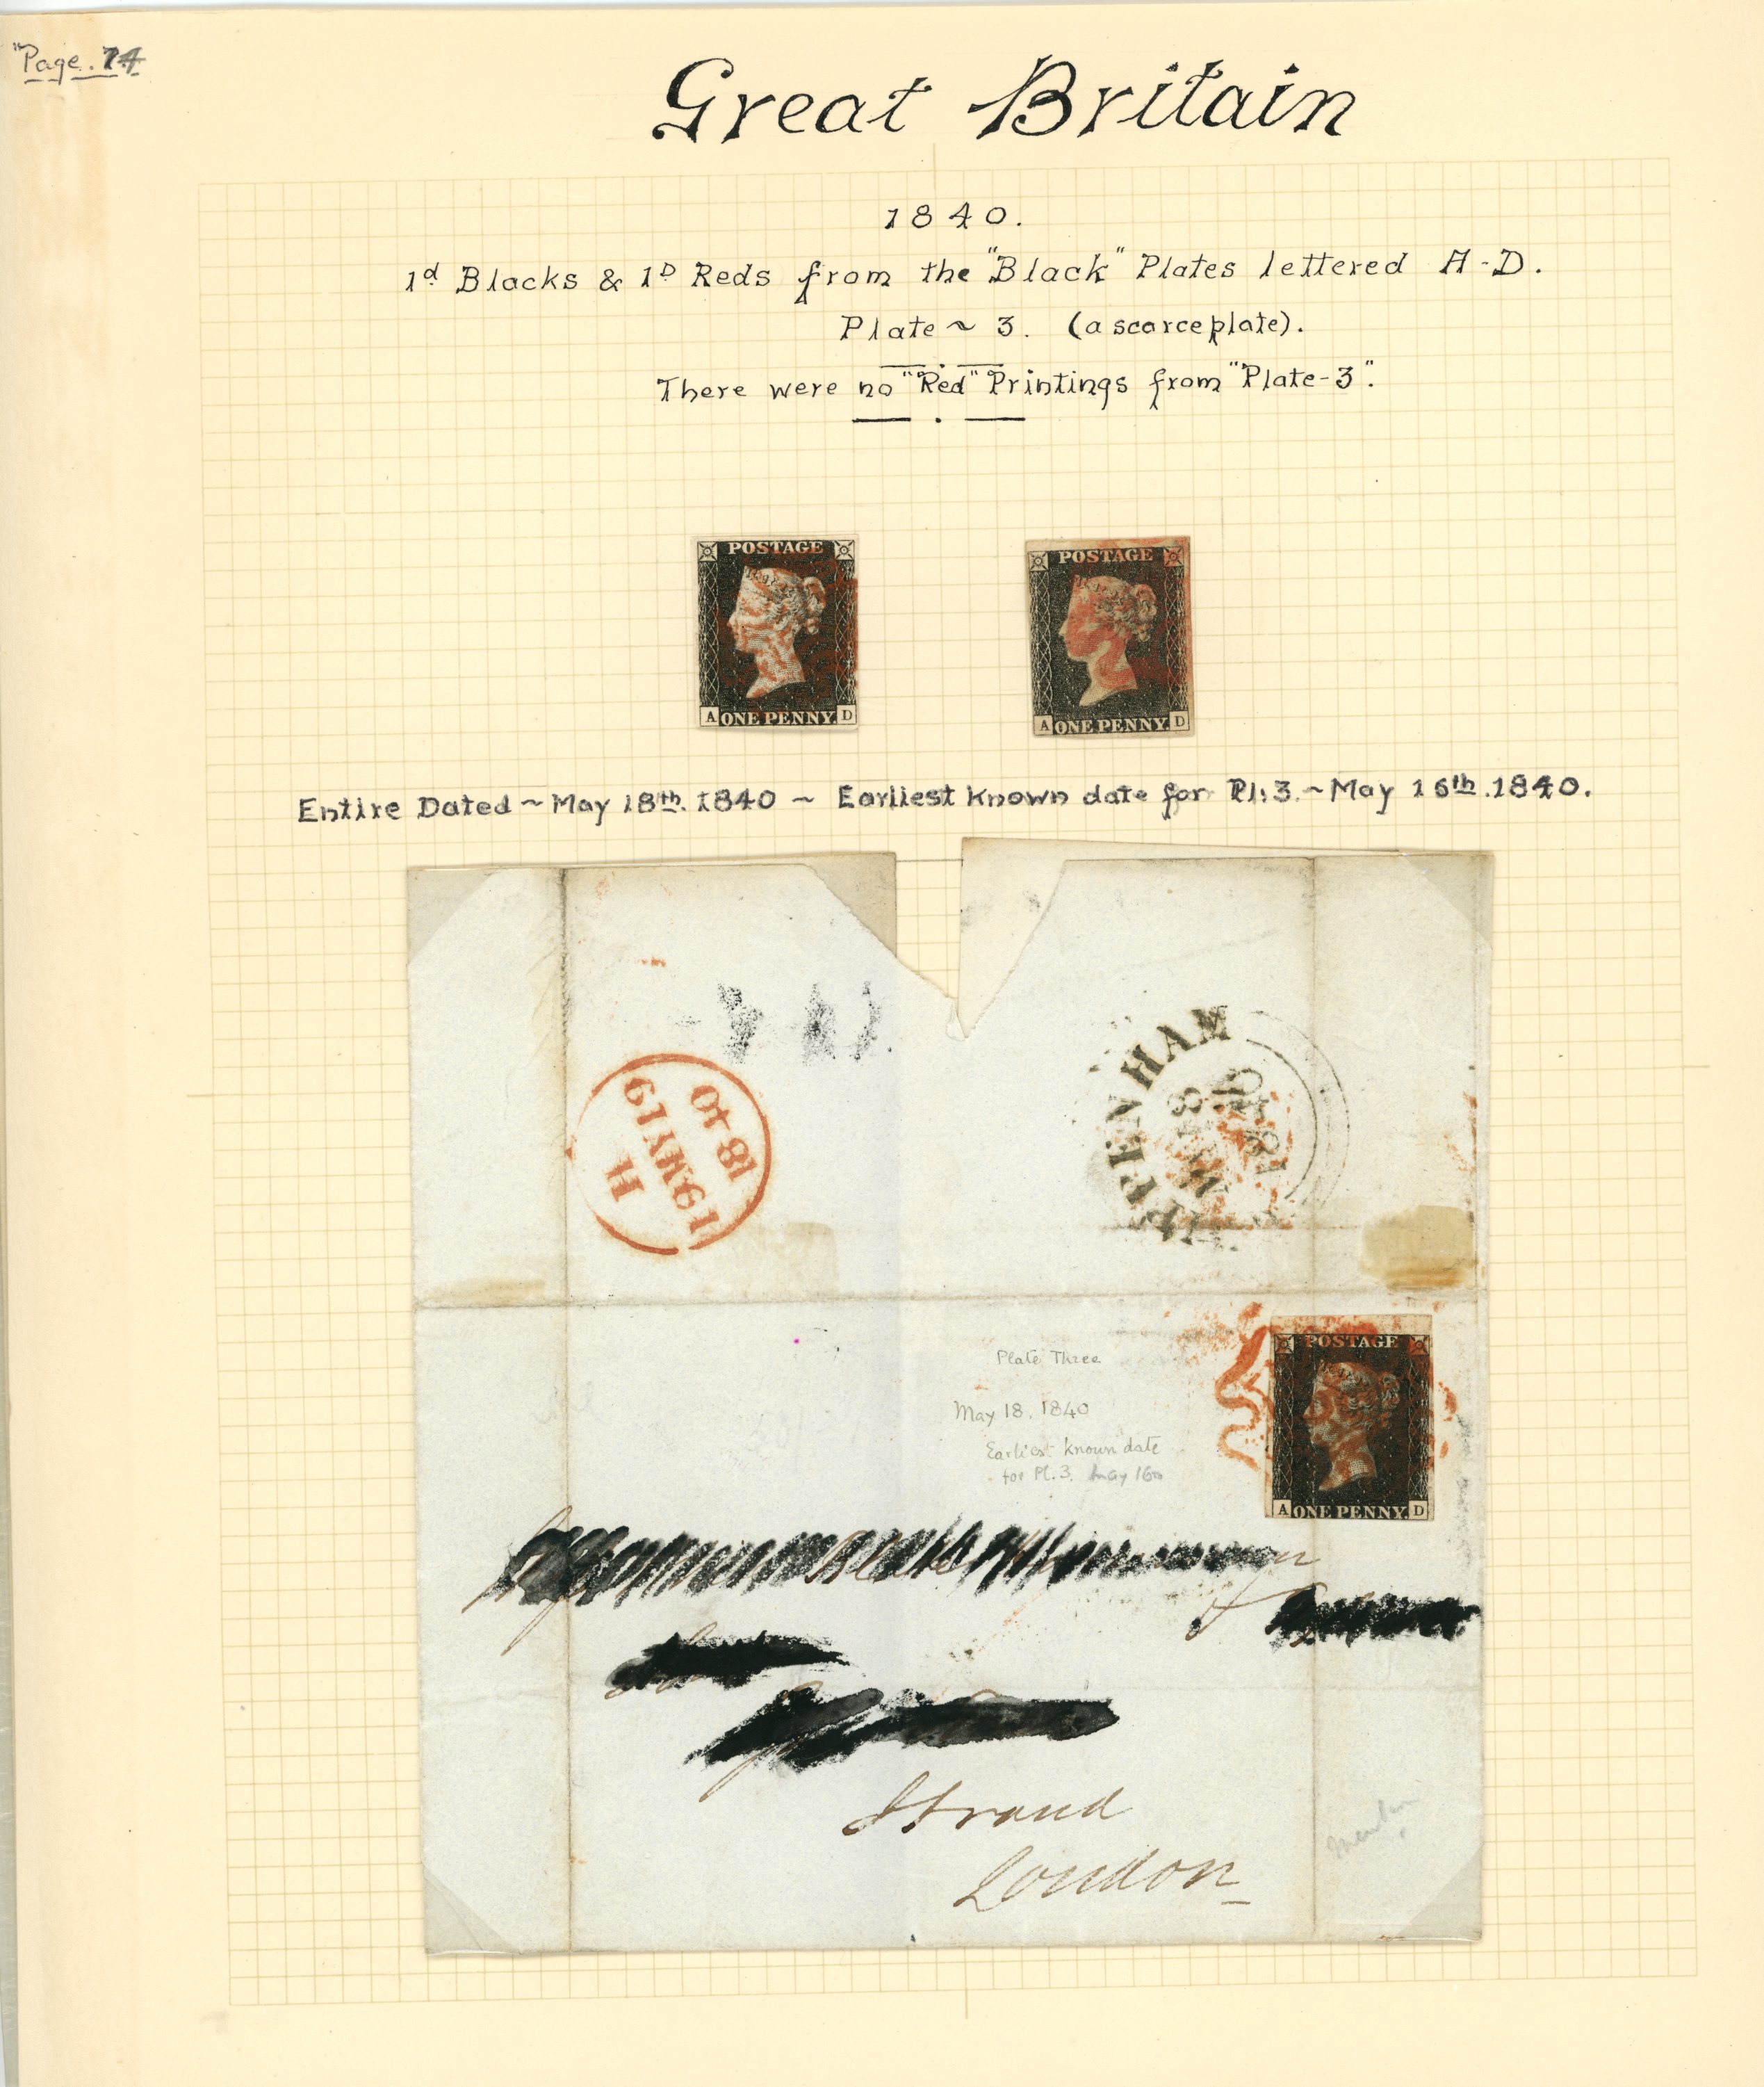 "Page. 74
Great Britain
1840.
1d Blacks & 1D Reds from the "Black" Plates lettered A-D.
Plate ~ 3. (a scarce plate).
There were no "Red" Printings from "Plate-3".
POSTAGE
A ONE PENNY. D
POSTAGE
A ONE PENNY. D
Entire Dated ~ May 18th. 1840 ~ Earliest Known date for Pl: 3. ~ May 16th. 1840.
H
19MY19
1840
IPPENHAM
MY18
1840
Plate Three
May 18. 1840
Earlies- known date
for Pl. 3. May 16
POSTAGE
A ONE PENNY. D
Strand
London